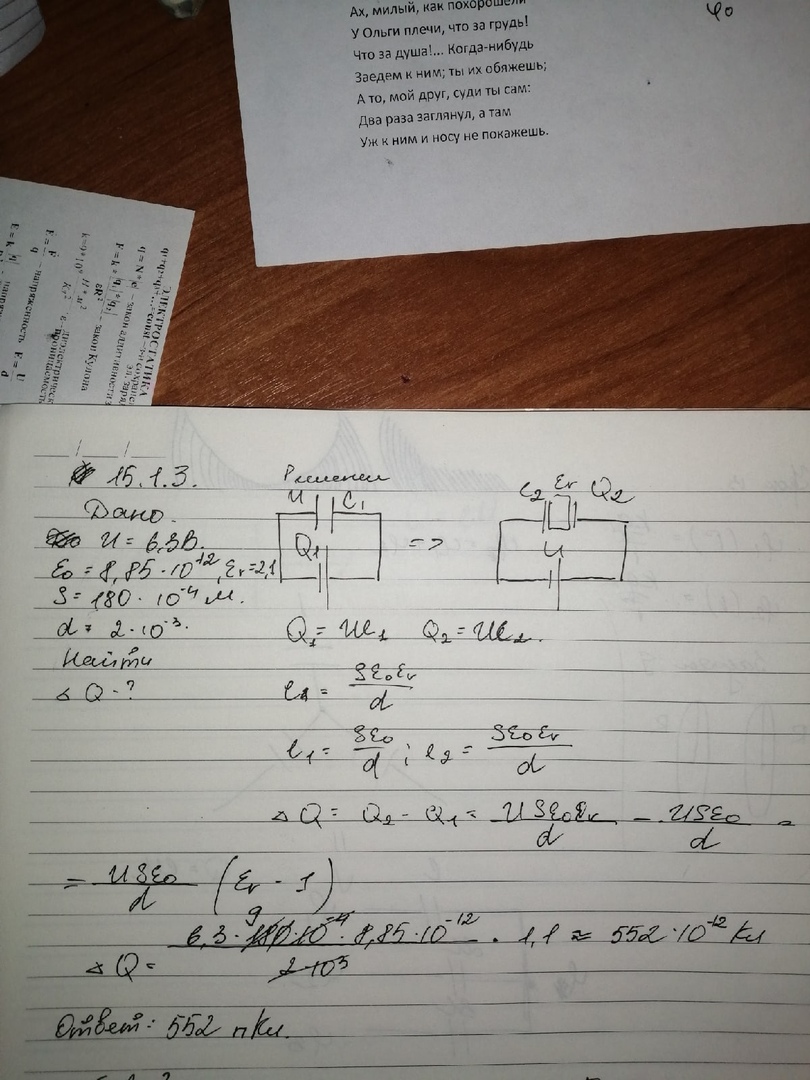 Ах, милый, как похорошели
У Ольги плечи, что за грудь!
Что за душа!... Когда-нибудь
Заедем к ним; ты их обяжешь;
А то, мой друг, суди ты сам:
Два раза заглянул, а там
Уж к ним и носу не покажешь.
φ0
ЭЛЕКТРОСТАТИКА
q = N*e
- закон Кулона
- напряженность E = U/d
15.1.3.
Решение
Дано.
U = 6,3 В.
ε0 = 8,85·10^-12, εr=2,1
S = 180·10^-4 м.
d = 2·10^-3.
Найти
Δ Q - ?
U C1
Q1
=>
C2 εr Q2
U
Q1 = UC1 Q2 = UC2.
C2 = Sε0εr/d
C1 = Sε0/d ; C2 = Sε0εr/d
Δ Q = Q2 - Q1 = USε0εr/d - USε0/d =
= USε0/d (εr - 1)
Δ Q = 6,3·180·10^-4·8,85·10^-12/2·10^3 · 1,1 ≈ 552·10^-12 Кл
9
Ответ: 552 пКл.